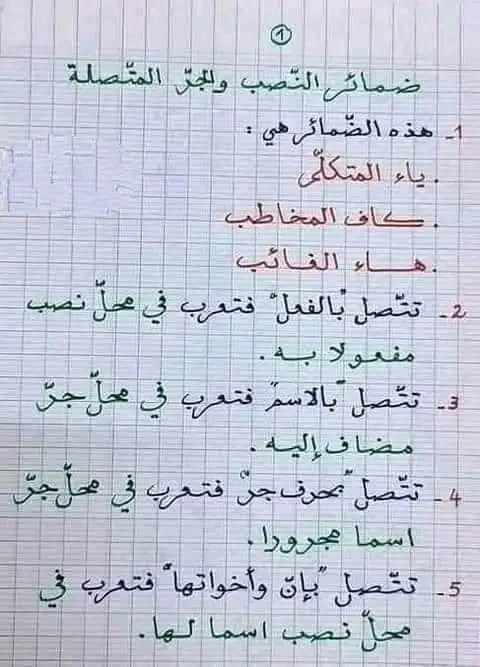 1
ضمائر النّصب والجرّ المتّصلة
1- هذه الضّمائر هي :
. ياء المتكلّم
. كاف المخاطب
. هاء الغائب
2- تتّصل "بالفعل" فتعرب في محلّ نصب
مفعولا به .
3- تتّصل "بالاسم" فتعرب في محلّ جرّ
مضاف إليه .
4- تتّصل "بحرف جرّ" فتعرب في محلّ جرّ
اسما مجرورا .
5- تتّصل "بإنّ وأخواتها" فتعرب في
محلّ نصب اسما لها .